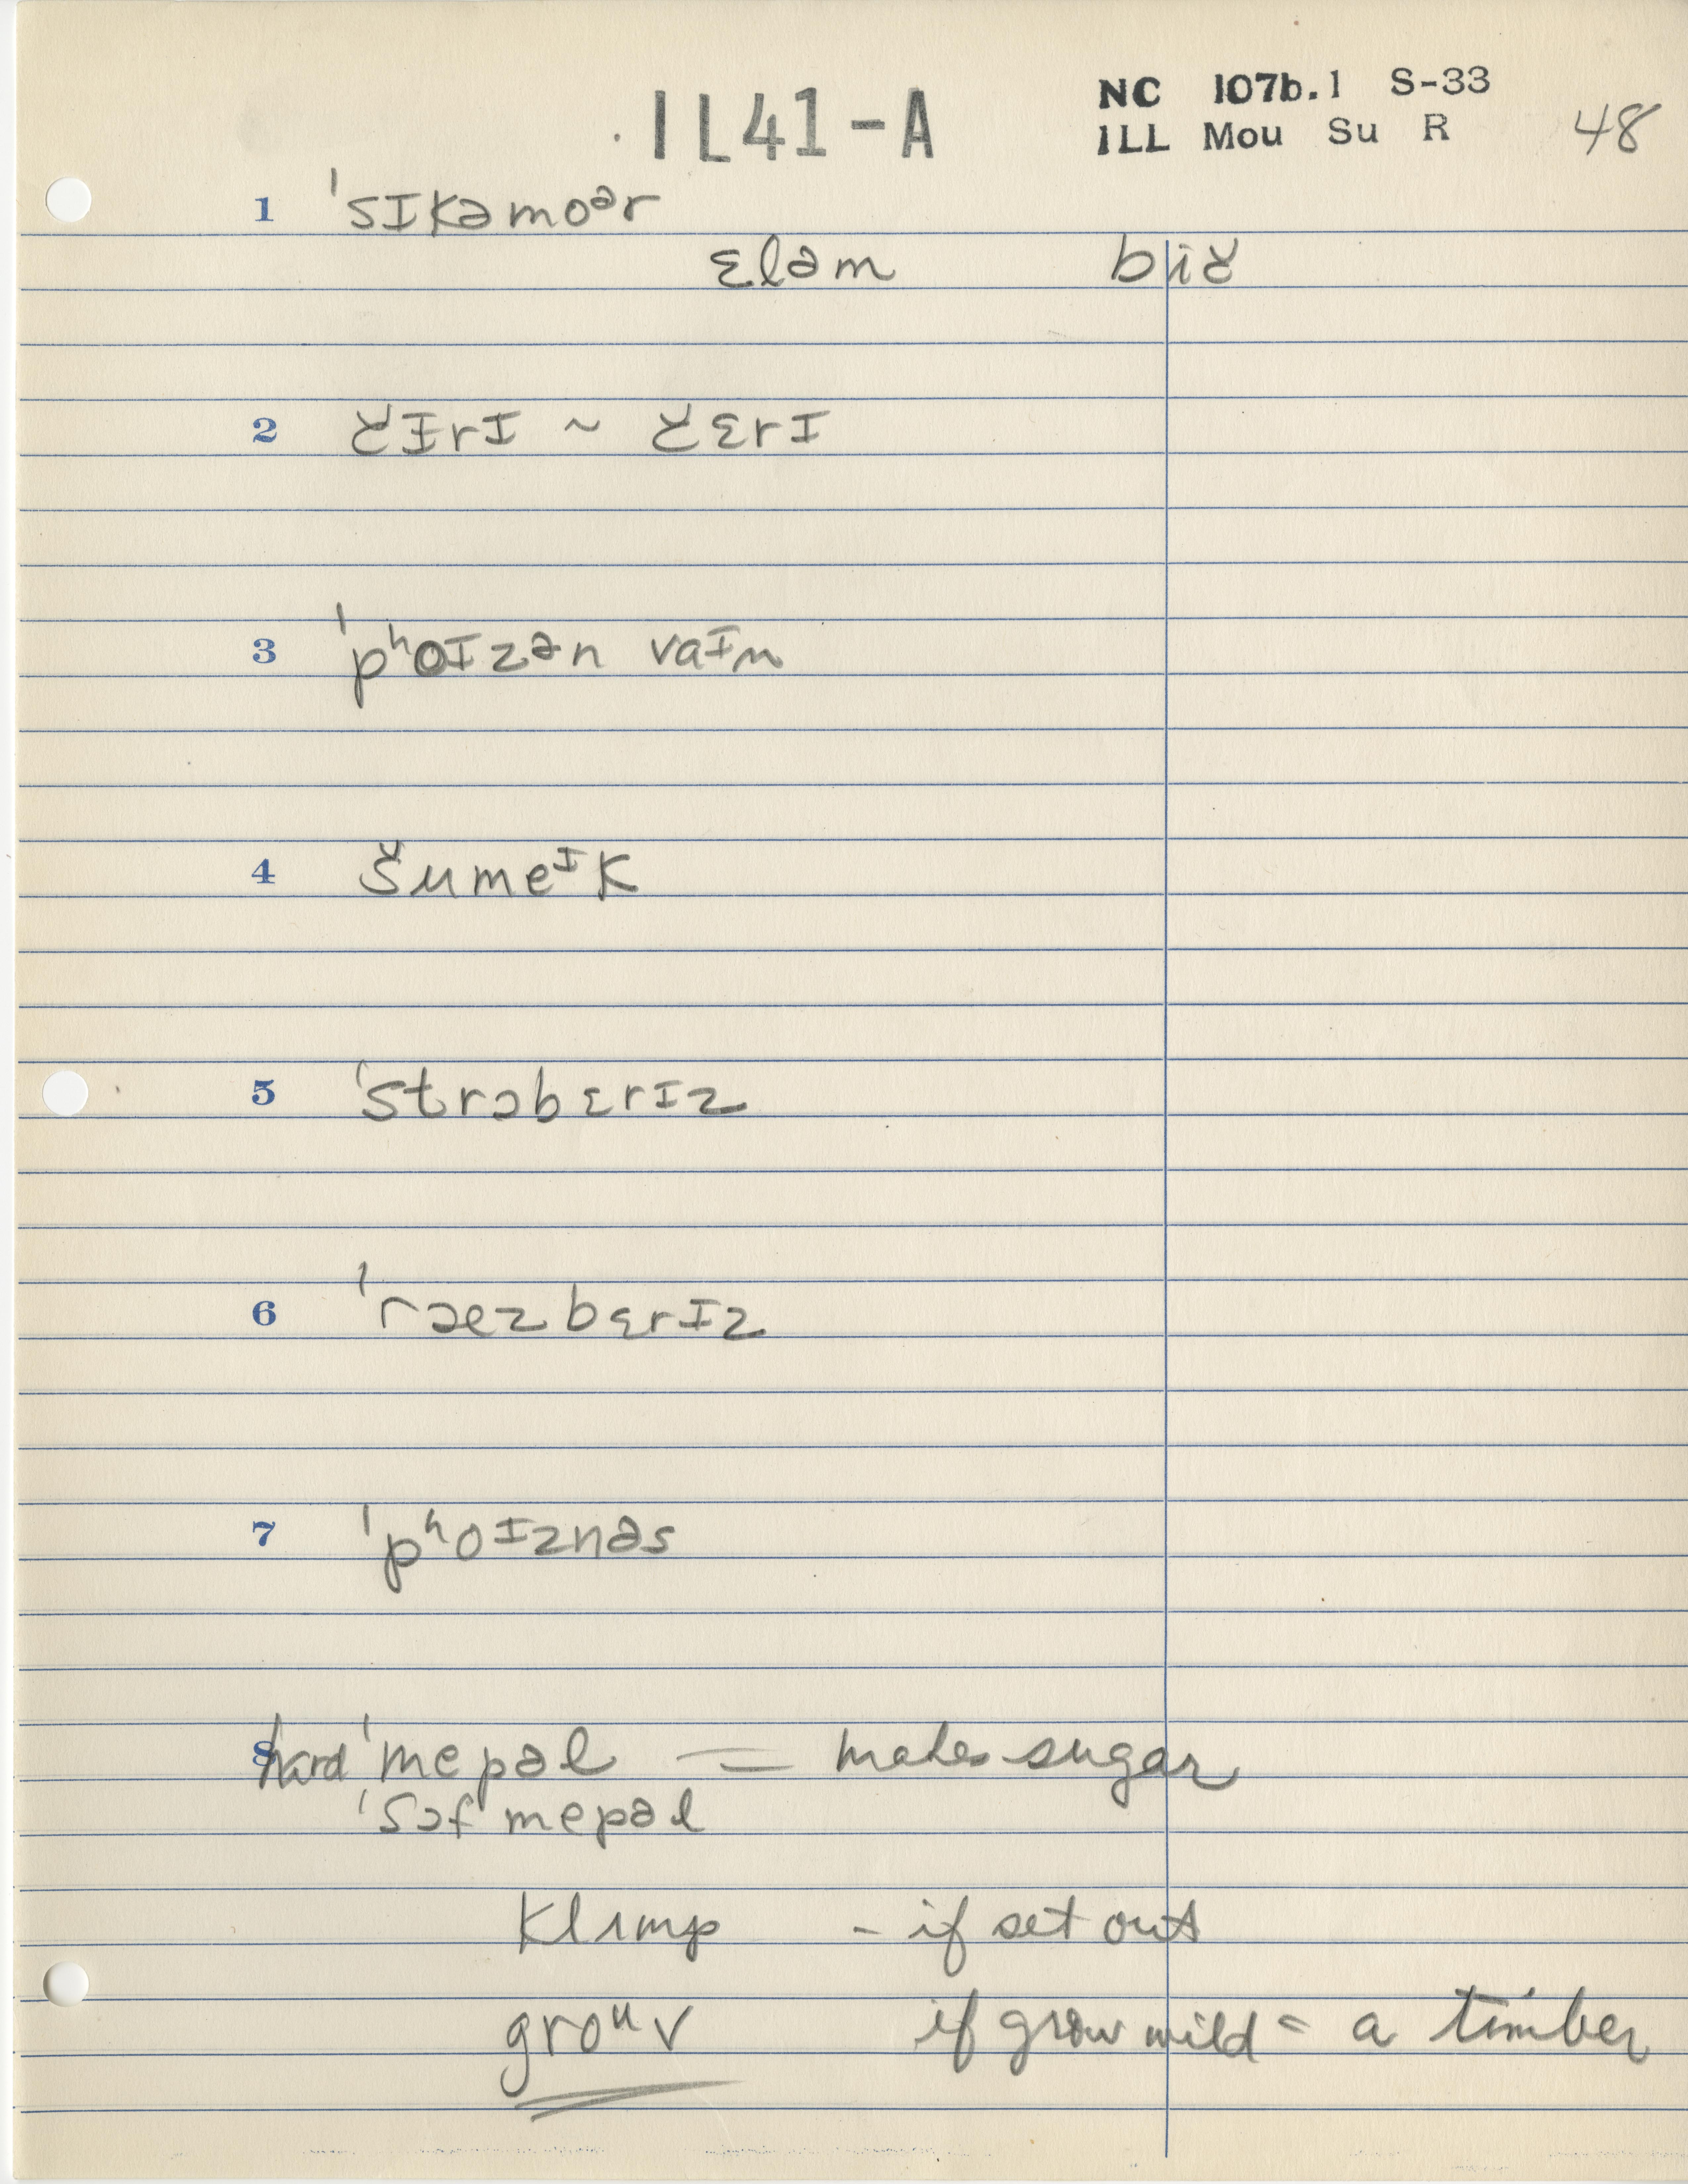 IL41-A
NC 107b.1 S-33
ILL Mou Su R
48
1 ˈsɪkəmoᵊr
ɛləm bič
2 čɪrɪ ~ čɛrɪ
3 ˈpʰoɪzən vaɪn
4 šumeᶦk
5 ˈstrɔbɛrɪz
6 ˈræzbɛrɪz
7 ˈpʰoɪznəs
8 hard ˈmepəl = makes sugar
ˈsɔf mepəl
klʌmp - if set out
groᵘv if grow wild = a timber